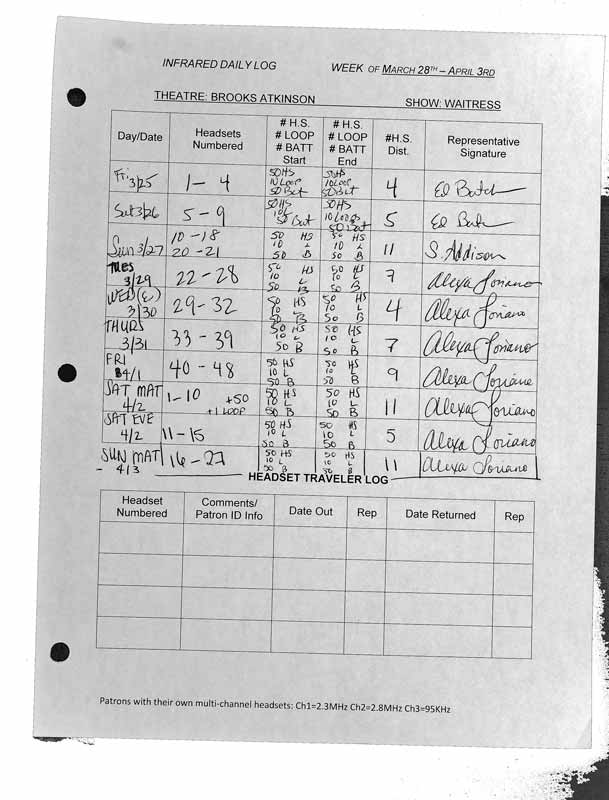 INFRARED DAILY LOG WEEK OF MARCH 28TH – APRIL 3RD
THEATRE: BROOKS ATKINSON SHOW: WAITRESS
Day/Date Headsets Numbered # H.S. # LOOP # BATT Start # H.S. # LOOP # BATT End #H.S. Dist. Representative Signature
Fri 3/25 1 – 4 50 HS 10 Loop 50 Bat 50 HS 10 Loop 50 Bat 4 Ed Batch
Sat 3/26 5 – 9 50 HS 10 L 50 Bat 50 HS 10 Loops 50 Bat 5 Ed
Sun 3/27 10 – 18 20 – 21 50 HS 10 L 50 B 50 HS 10 L 50 B 11 S. Addison
TUES 3/29 22 – 28 50 HS 10 L 50 B 50 HS 10 L 50 B 7 Alexa Soriano
WED (E) 3/30 29 – 32 50 HS 10 L 50 B 50 HS 10 L 50 B 4 Alexa Soriano
THURS 3/31 33 – 39 50 HS 10 L 50 B 50 HS 10 L 50 B 7 Alexa Soriano
FRI 4/1 40 – 48 50 HS 10 L 50 B 50 HS 10 L 50 B 9 Alexa Soriano
SAT MAT 4/2 1 – 10 +50 +1 LOOP 50 HS 10 L 50 B 50 HS 10 L 50 B 11 Alexa Soriano
SAT EVE 4/2 11 – 15 50 HS 10 L 50 B 50 HS 10 L 50 B 5 Alexa Soriano
SUN MAT - 4/3 16 – 27 50 HS 10 L 50 B 50 HS 10 L 50 B 11 Alexa Soriano
HEADSET TRAVELER LOG
Headset Numbered Comments/ Patron ID Info Date Out Rep Date Returned Rep
Patrons with their own multi-channel headsets: Ch1=2.3MHz Ch2=2.8MHz Ch3=95KHz